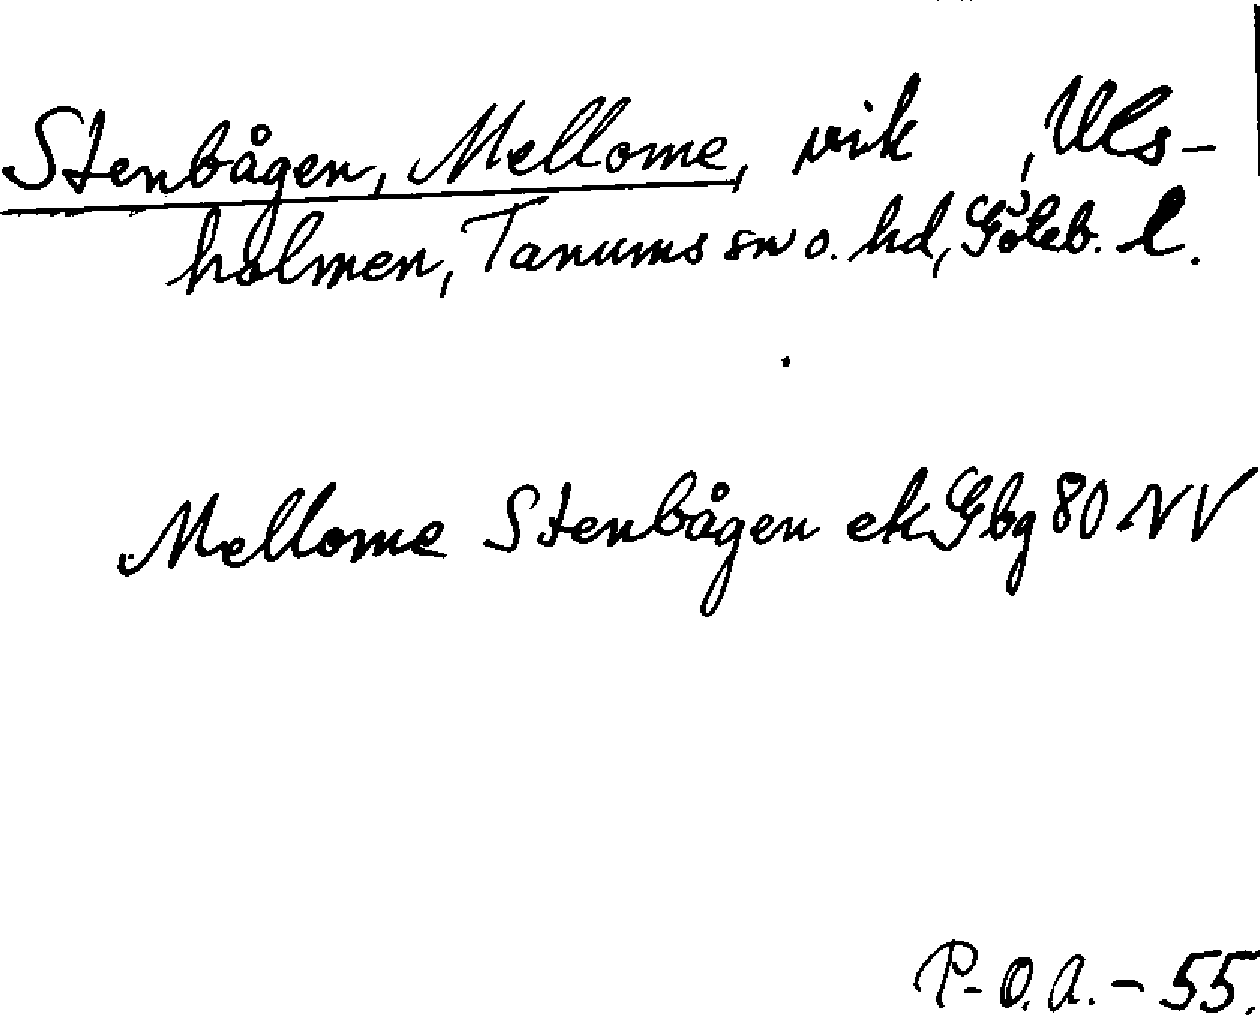 Stenbågen, Mellome, vik , Uls-
holmen, Tanums sn o. hd, Göteb. l.
Mellome Stenbågen ek Gbg 80 NV
P-O.A. - 55.